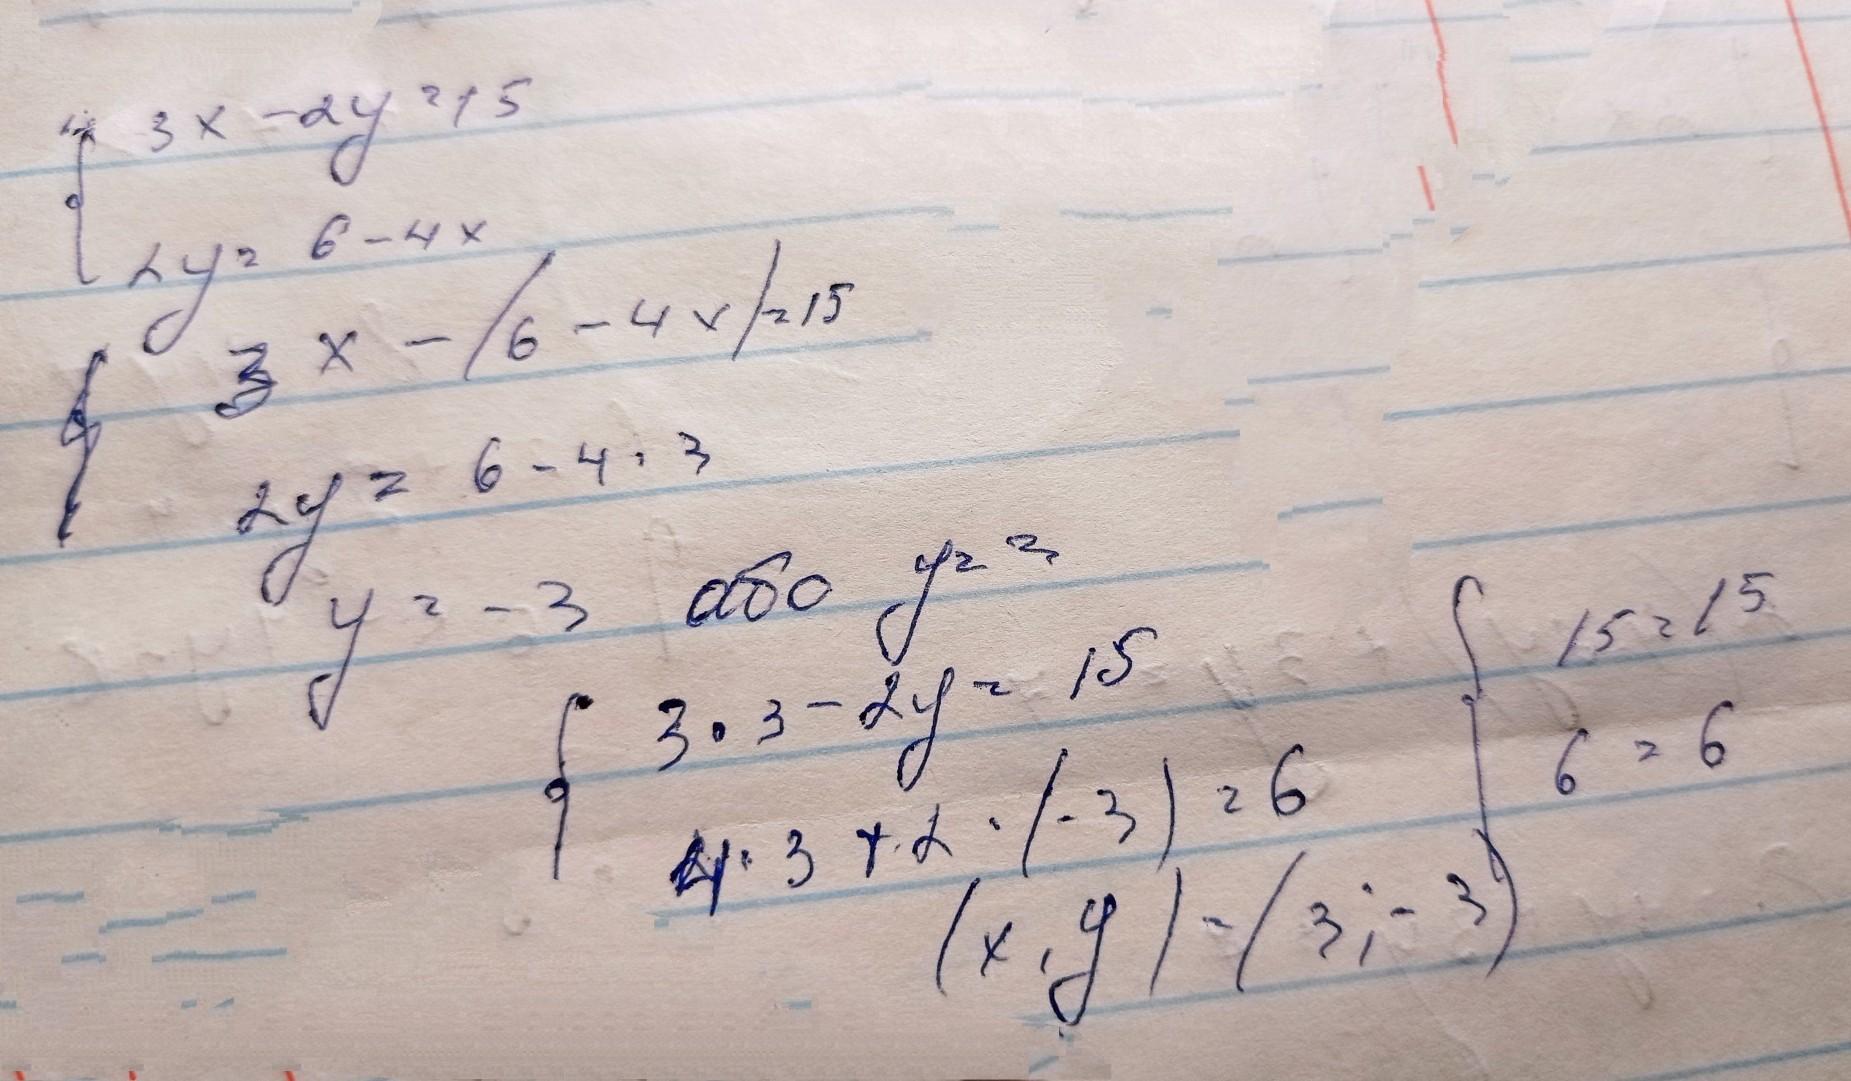 3x - 2y = 15
2y = 6 - 4x
3x - (6 - 4x) = 15
2y = 6 - 4 · 3
y = -3 або y =
3 · 3 - 2y = 15
4 · 3 + 2 · (-3) = 6
15 = 15
6 = 6
(x, y) - (3; -3)